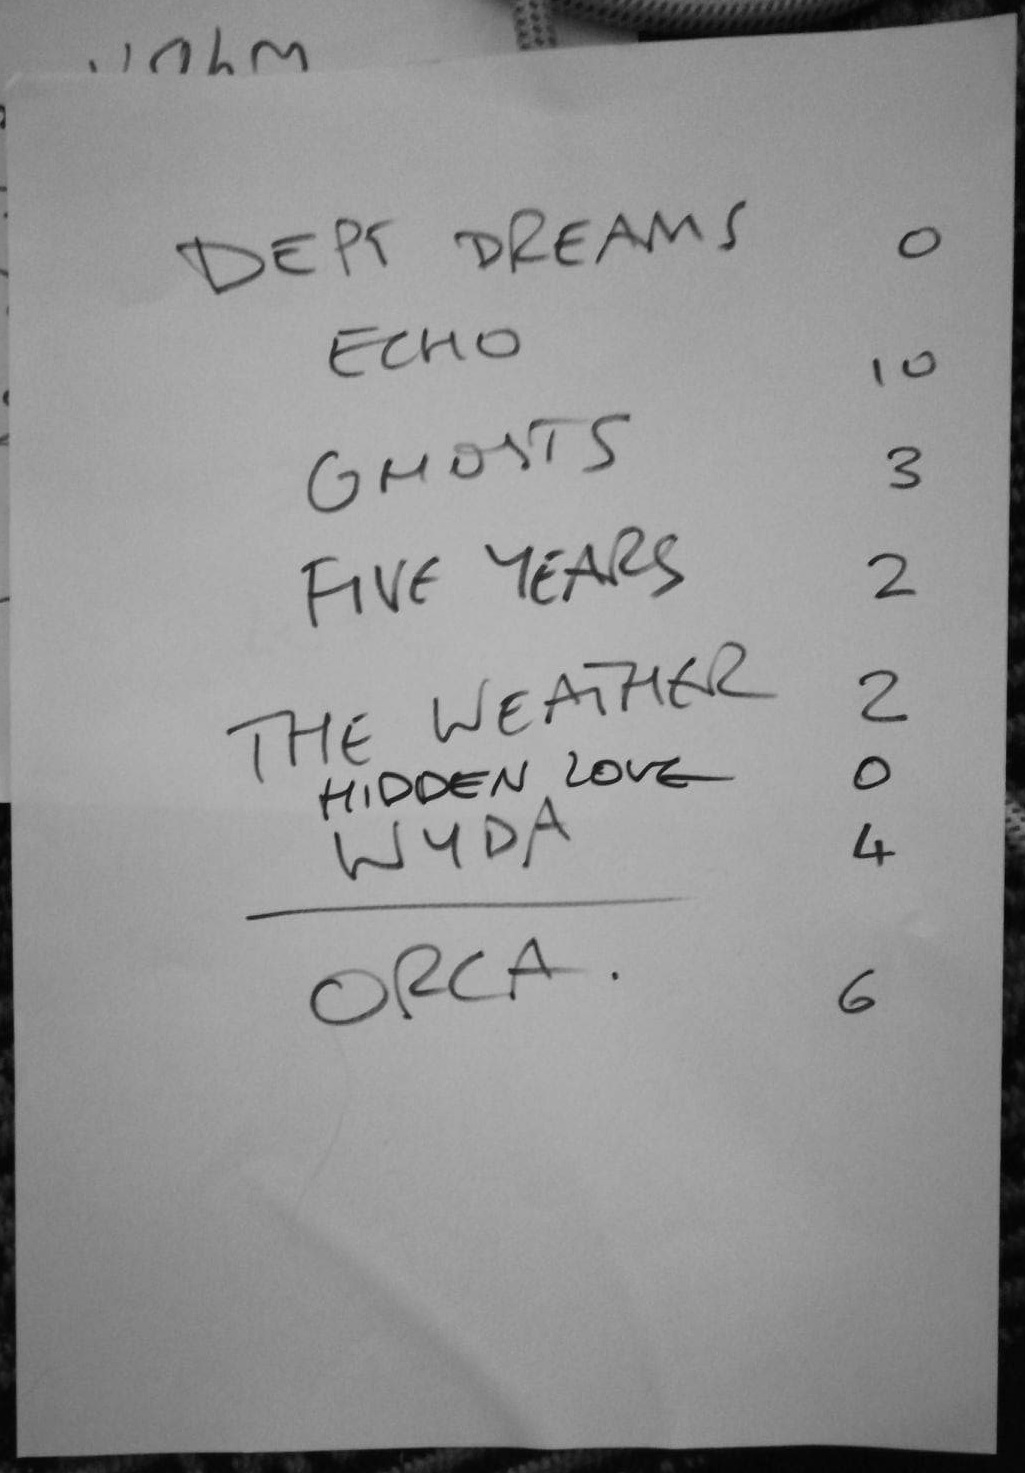 DEPT DREAMS 0
ECHO 10
GHOSTS 3
FIVE YEARS 2
THE WEATHER 2
HIDDEN LOVE 0
WYDA 4
ORCA. 6